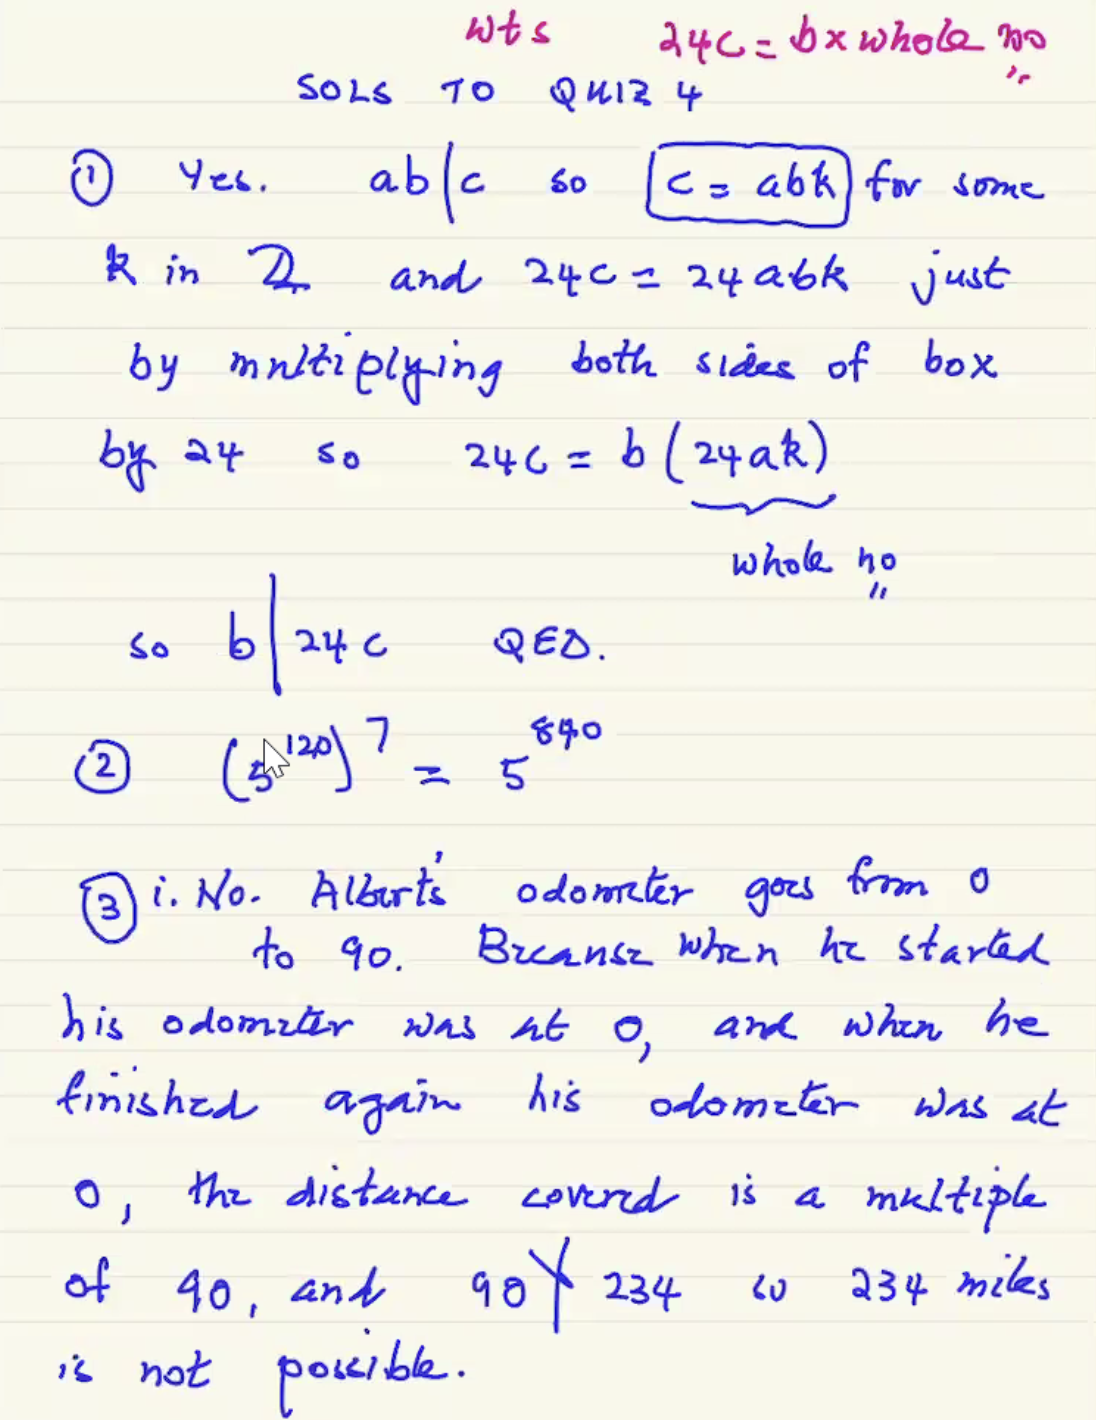 wts 24c = b x whole no
SOLS TO QUIZ 4
① Yes. ab|c so c = abk for some
k in ℤ and 24c = 24abk just
by multiplying both sides of box
by 24 so 24c = b(24ak)
whole no
so b|24c QED.
② (5^120)^7 = 5^840
③ i. No. Albert's odometer goes from 0
to 90. Because when he started
his odometer was at 0, and when he
finished again his odometer was at
0, the distance covered is a multiple
of 90, and 90∤234 so 234 miles
is not possible.